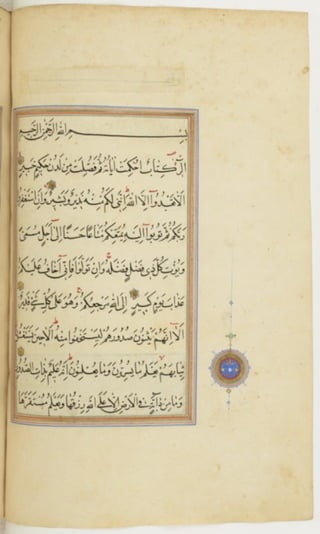 بِسْمِ اللهِ الرَّحْمٰنِ الرَّحِيمِ
الٓرٰ كِتَابٌ اُحْكِمَتْ اٰيَاتُهُ ثُمَّ فُصِّلَتْ مِنْ لَدُنْ حَكِيمٍ خَبِيرٍ
اَلَّا تَعْبُدُوٓا اِلَّا اللهَ اِنَّنِي لَكُمْ مِنْهُ نَذِيرٌ وَبَشِيرٌ وَاَنِ اسْتَغْفِرُوا
رَبَّكُمْ ثُمَّ تُوبُوٓا اِلَيْهِ يُمَتِّعْكُمْ مَتَاعًا حَسَنًا اِلٰٓى اَجَلٍ مُسَمًّى
وَيُؤْتِ كُلَّ ذِي فَضْلٍ فَضْلَهُ وَاِنْ تَوَلَّوْا فَاِنِّيٓ اَخَافُ عَلَيْكُمْ
عَذَابَ يَوْمٍ كَبِيرٍ اِلَى اللهِ مَرْجِعُكُمْ وَهُوَ عَلٰى كُلِّ شَيْءٍ قَدِيرٌ
اَلَآ اِنَّهُمْ يَثْنُونَ صُدُورَهُمْ لِيَسْتَخْفُوا مِنْهُ اَلَا حِينَ يَسْتَغْشُونَ
ثِيَابَهُمْ يَعْلَمُ مَا يُسِرُّونَ وَمَا يُعْلِنُونَ اِنَّهُ عَلِيمٌ بِذَاتِ الصُّدُورِ
وَمَا مِنْ دَآبَّةٍ فِي الْاَرْضِ اِلَّا عَلَى اللهِ رِزْقُهَا وَيَعْلَمُ مُسْتَقَرَّهَا